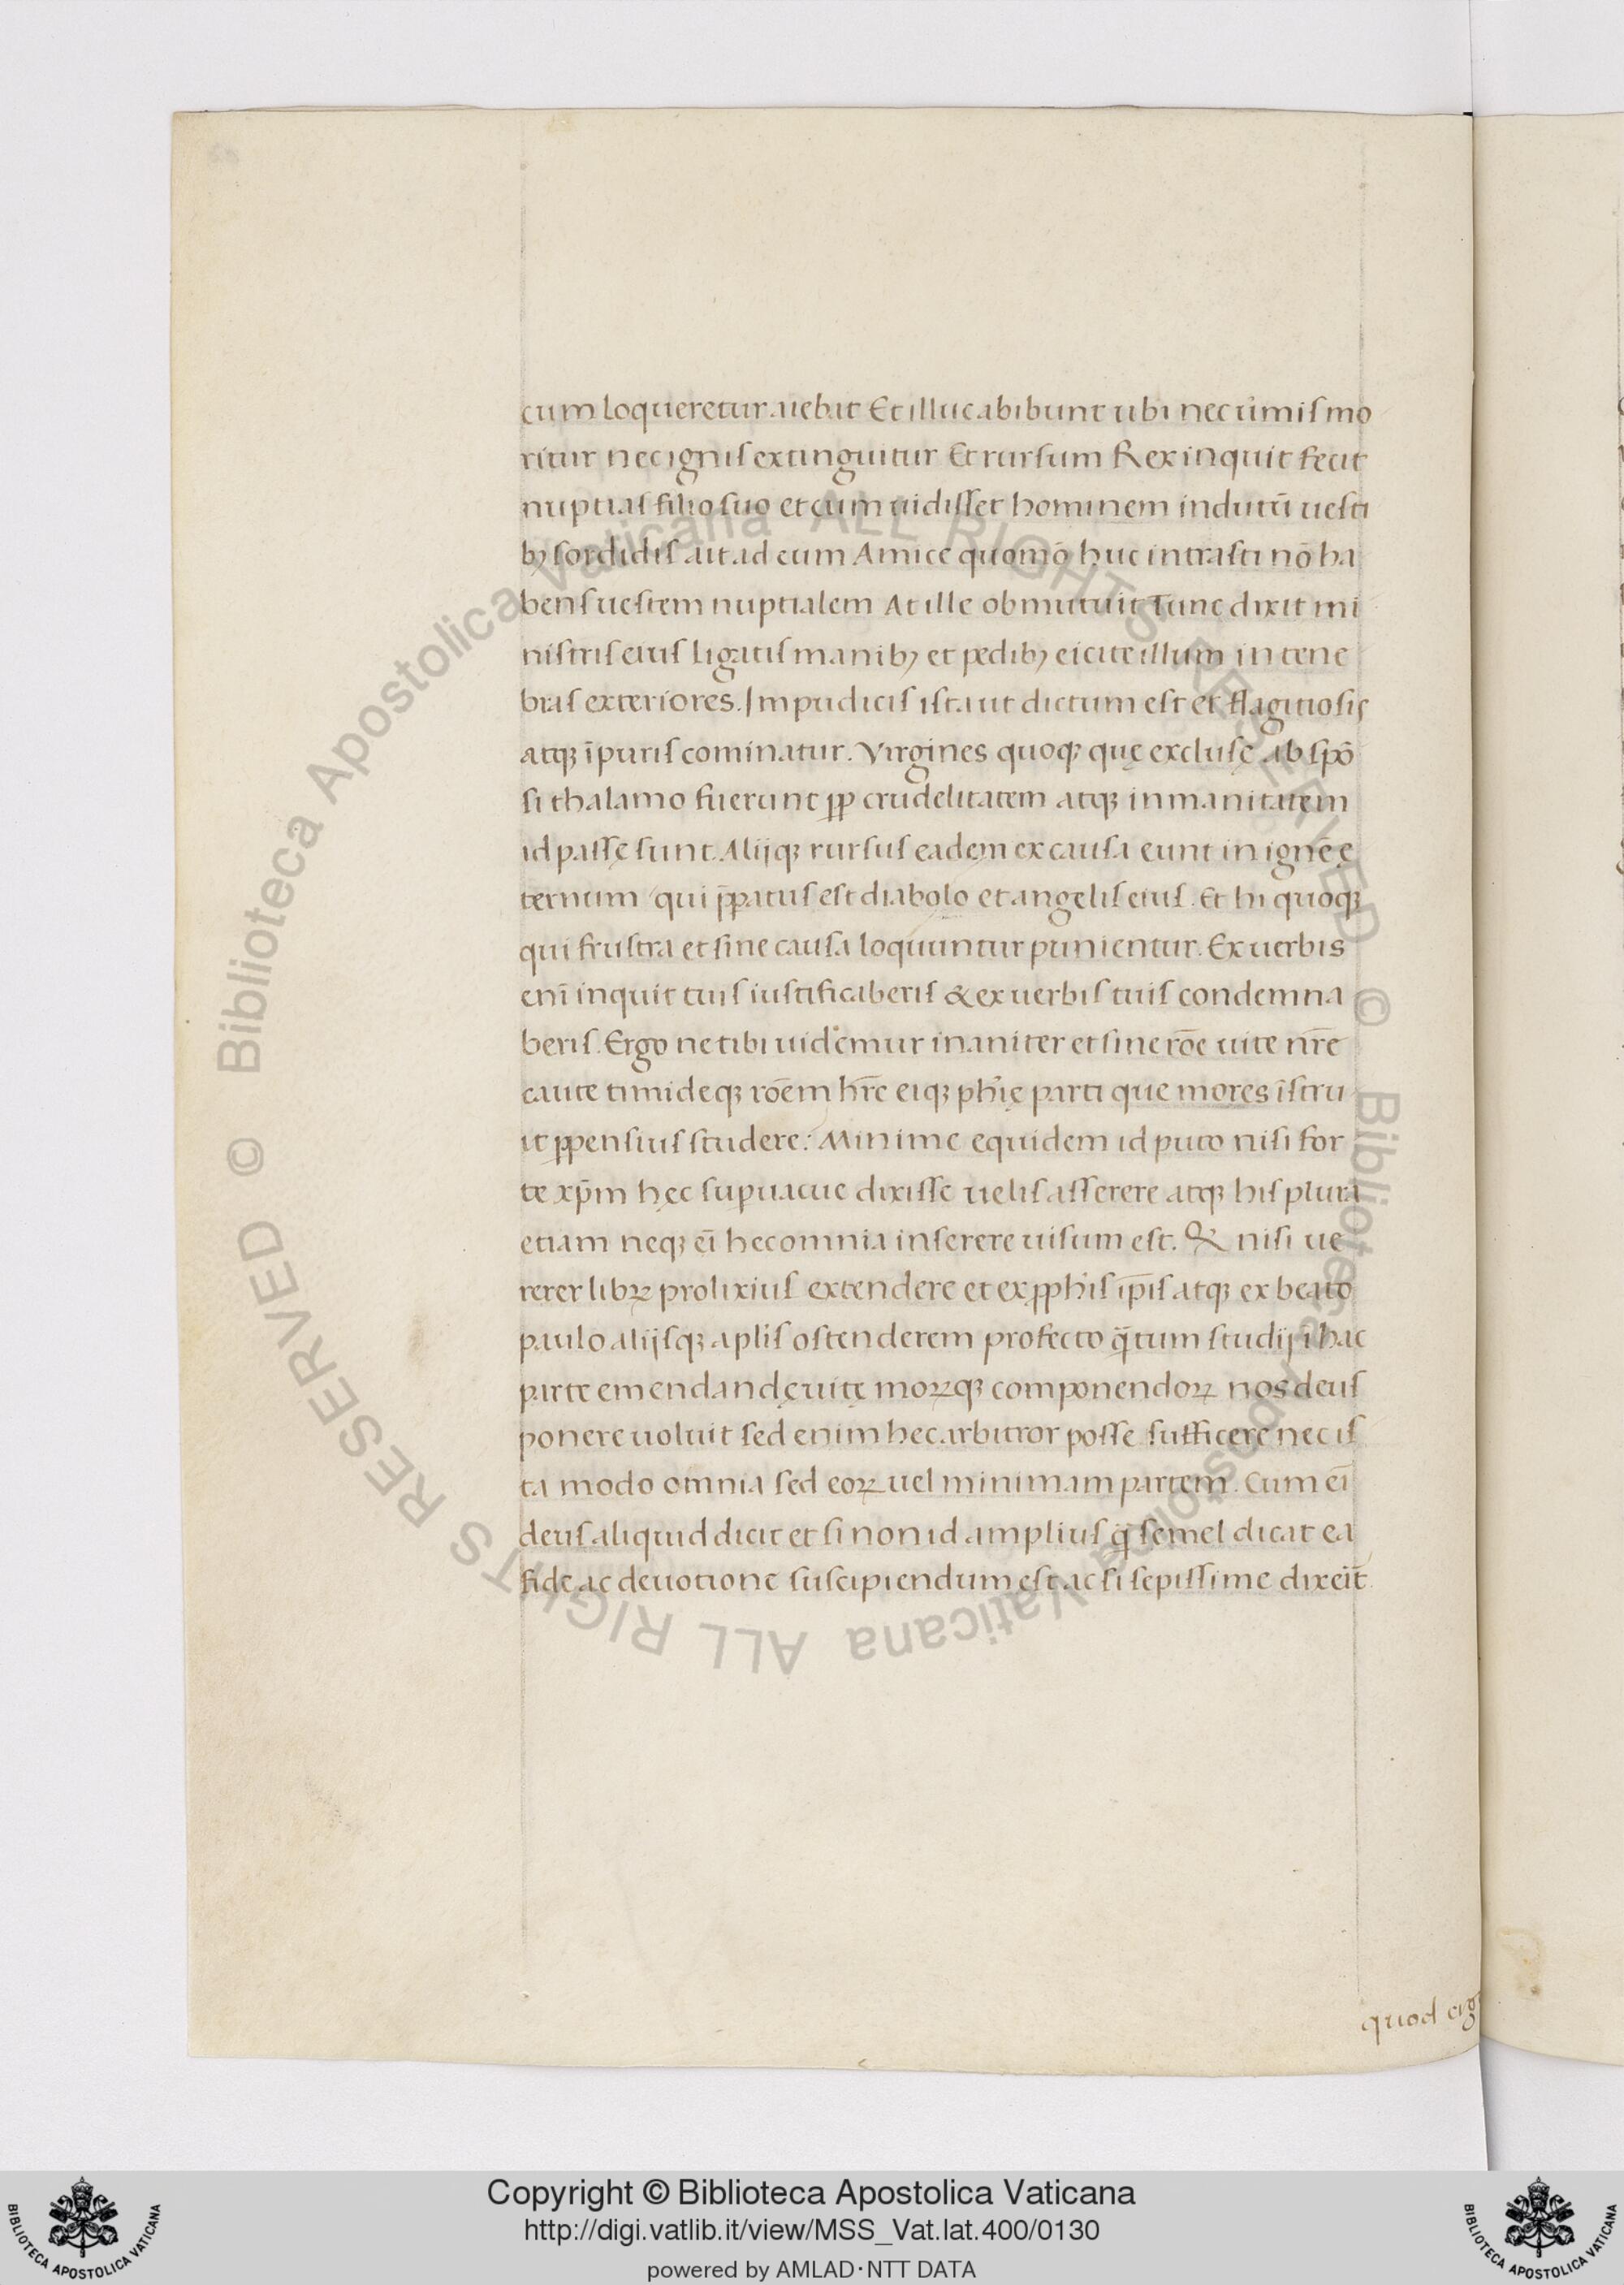 cum loqueretur aiebat Et illuc abibunt ubi nec uermis mo
ritur nec ignis extinguitur Et rursum Rex inquit fecit
nuptias filio suo et cum uidisset hominem indutū uesti
bꝫ sordidis ait ad eum Amice quomō huc intrasti nō ha
bens uestem nuptialem At ille obmutuit Tunc dixit mi
nistris eius ligatis manibꝫ et pedibꝫ eicite illum in tene
bras exteriores. Impudicis ista ut dictum est et flagitiosis
atqꝫ īpuris cominatur. Virgines quoqꝫ quę exclusę ab spō
si thalamo fuerunt ꝓp crudelitatem atqꝫ inmanitatem
id passę sunt. Alijqꝫ rursus eadem ex causa eunt in ignē ę
ternum qui p̄paratus est diabolo et angelis eius. Et hi quoqꝫ
qui frustra et sine causa loquuntur punientur. Ex uerbis
enī inquit tuis iustificaberis & ex uerbis tuis condemna
beris. Ergo ne tibi uidemur inaniter et sine rōe uite nr̄e
caute timideqꝫ rōem hr̄e eiqꝫ ph̄ię parti que mores īstru
it ꝓpensius studere: Minime equidem id puto nisi for
te xp̄m hęc supuacue dixisse uelis asserere atqꝫ his plura
etiam neqꝫ eī hec omnia inserere uisum est. Qꝫ nisi ue
rerer librꝫ prolixius extendere et ex ꝓphis ip̄is atqꝫ ex beato
paulo alijsqꝫ aplis ostenderem profecto q̄tum studij ī hac
parte emendandę uitę moꝝqꝫ componendoꝝ nos deus
ponere uoluit sed enim hec arbitror posse sufficere nec is
ta modo omnia sed eoꝝ uel minimam partem. Cum eī
deus aliquid dicit et si non id amplius q̄ semel dicat ea
fide ac deuotione suscipiendum est ac si sepissime dixeīt
quod erg
Copyright © Biblioteca Apostolica Vaticana
http://digi.vatlib.it/view/MSS_Vat.lat.400/0130
powered by AMLAD·NTT DATA
BIBLIOTECA APOSTOLICA VATICANA
BIBLIOTECA APOSTOLICA VATICANA
© Biblioteca Apostolica Vaticana ALL RIGHTS RESERVED
© Biblioteca Apostolica Vaticana ALL RIGHTS RESERVED